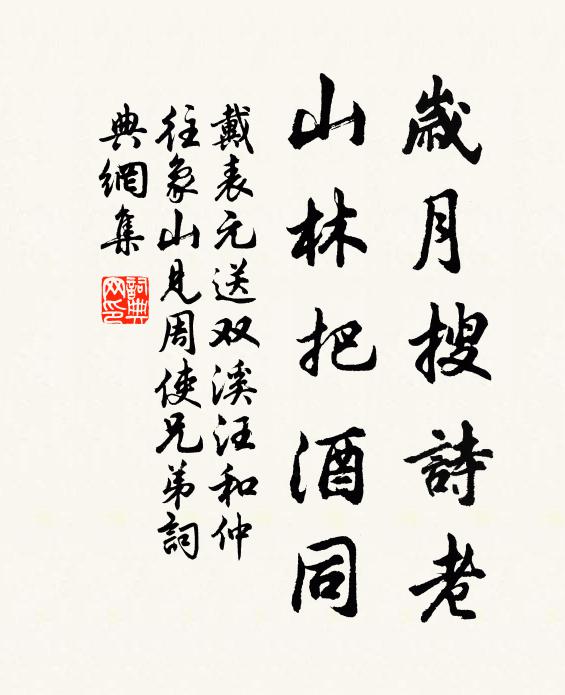 歲月搜詩老
山林把酒同
戴表元送双溪汪和仲
往象山見周使兄弟詞
典網集
詞典網印